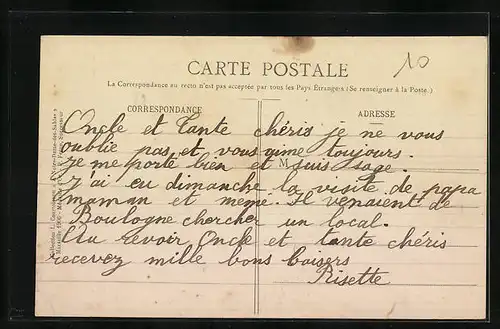 10
CARTE POSTALE
La Correspondance au recto n'est pas acceptée par tous les Pays Étrangers (Se renseigner à la Poste.)
CORRESPONDANCE
ADRESSE
Oncle et Tante chéris je ne vous
oublie pas et vous aime toujours.
je me porte bien et suis sage.
M
J'ai eu dimanche la visite de papa
maman et meme. Il venaient de
Boulogne chercher un local.
Au revoir Oncle et tante chéris
recevez mille bons baisers
Risette